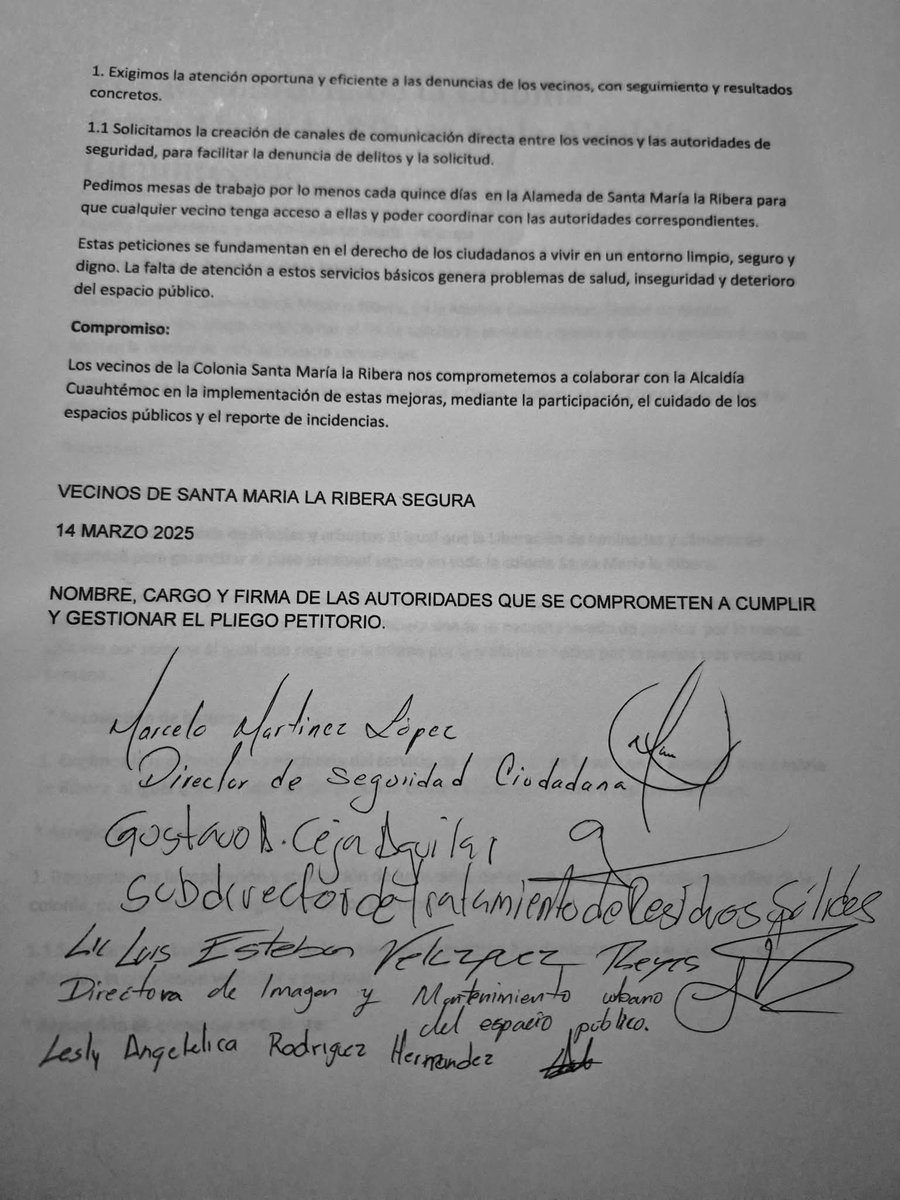 1. Exigimos la atención oportuna y eficiente a las denuncias de los vecinos, con seguimiento y resultados
concretos.
1.1 Solicitamos la creación de canales de comunicación directa entre los vecinos y las autoridades de
seguridad, para facilitar la denuncia de delitos y la solicitud.
Pedimos mesas de trabajo por lo menos cada quince días en la Alameda de Santa María la Ribera para
que cualquier vecino tenga acceso a ellas y poder coordinar con las autoridades correspondientes.
Estas peticiones se fundamentan en el derecho de los ciudadanos a vivir en un entorno limpio, seguro y
digno. La falta de atención a estos servicios básicos genera problemas de salud, inseguridad y deterioro
del espacio público.
Compromiso:
Los vecinos de la Colonia Santa María la Ribera nos comprometemos a colaborar con la Alcaldía
Cuauhtémoc en la implementación de estas mejoras, mediante la participación, el cuidado de los
espacios públicos y el reporte de incidencias.
VECINOS DE SANTA MARIA LA RIBERA SEGURA
14 MARZO 2025
NOMBRE, CARGO Y FIRMA DE LAS AUTORIDADES QUE SE COMPROMETEN A CUMPLIR
Y GESTIONAR EL PLIEGO PETITORIO.
Marcelo Martinez López
Director de Seguridad Ciudadana
Gustavo A. Ceja Aguilar
Subdirector de Tratamiento de Residuos Sólidos
Lic Luis Esteban Velazquez Reyes
Directora de Imagen y Mantenimiento urbano
del espacio público.
Lesly Angelelica Rodriguez Hernandez